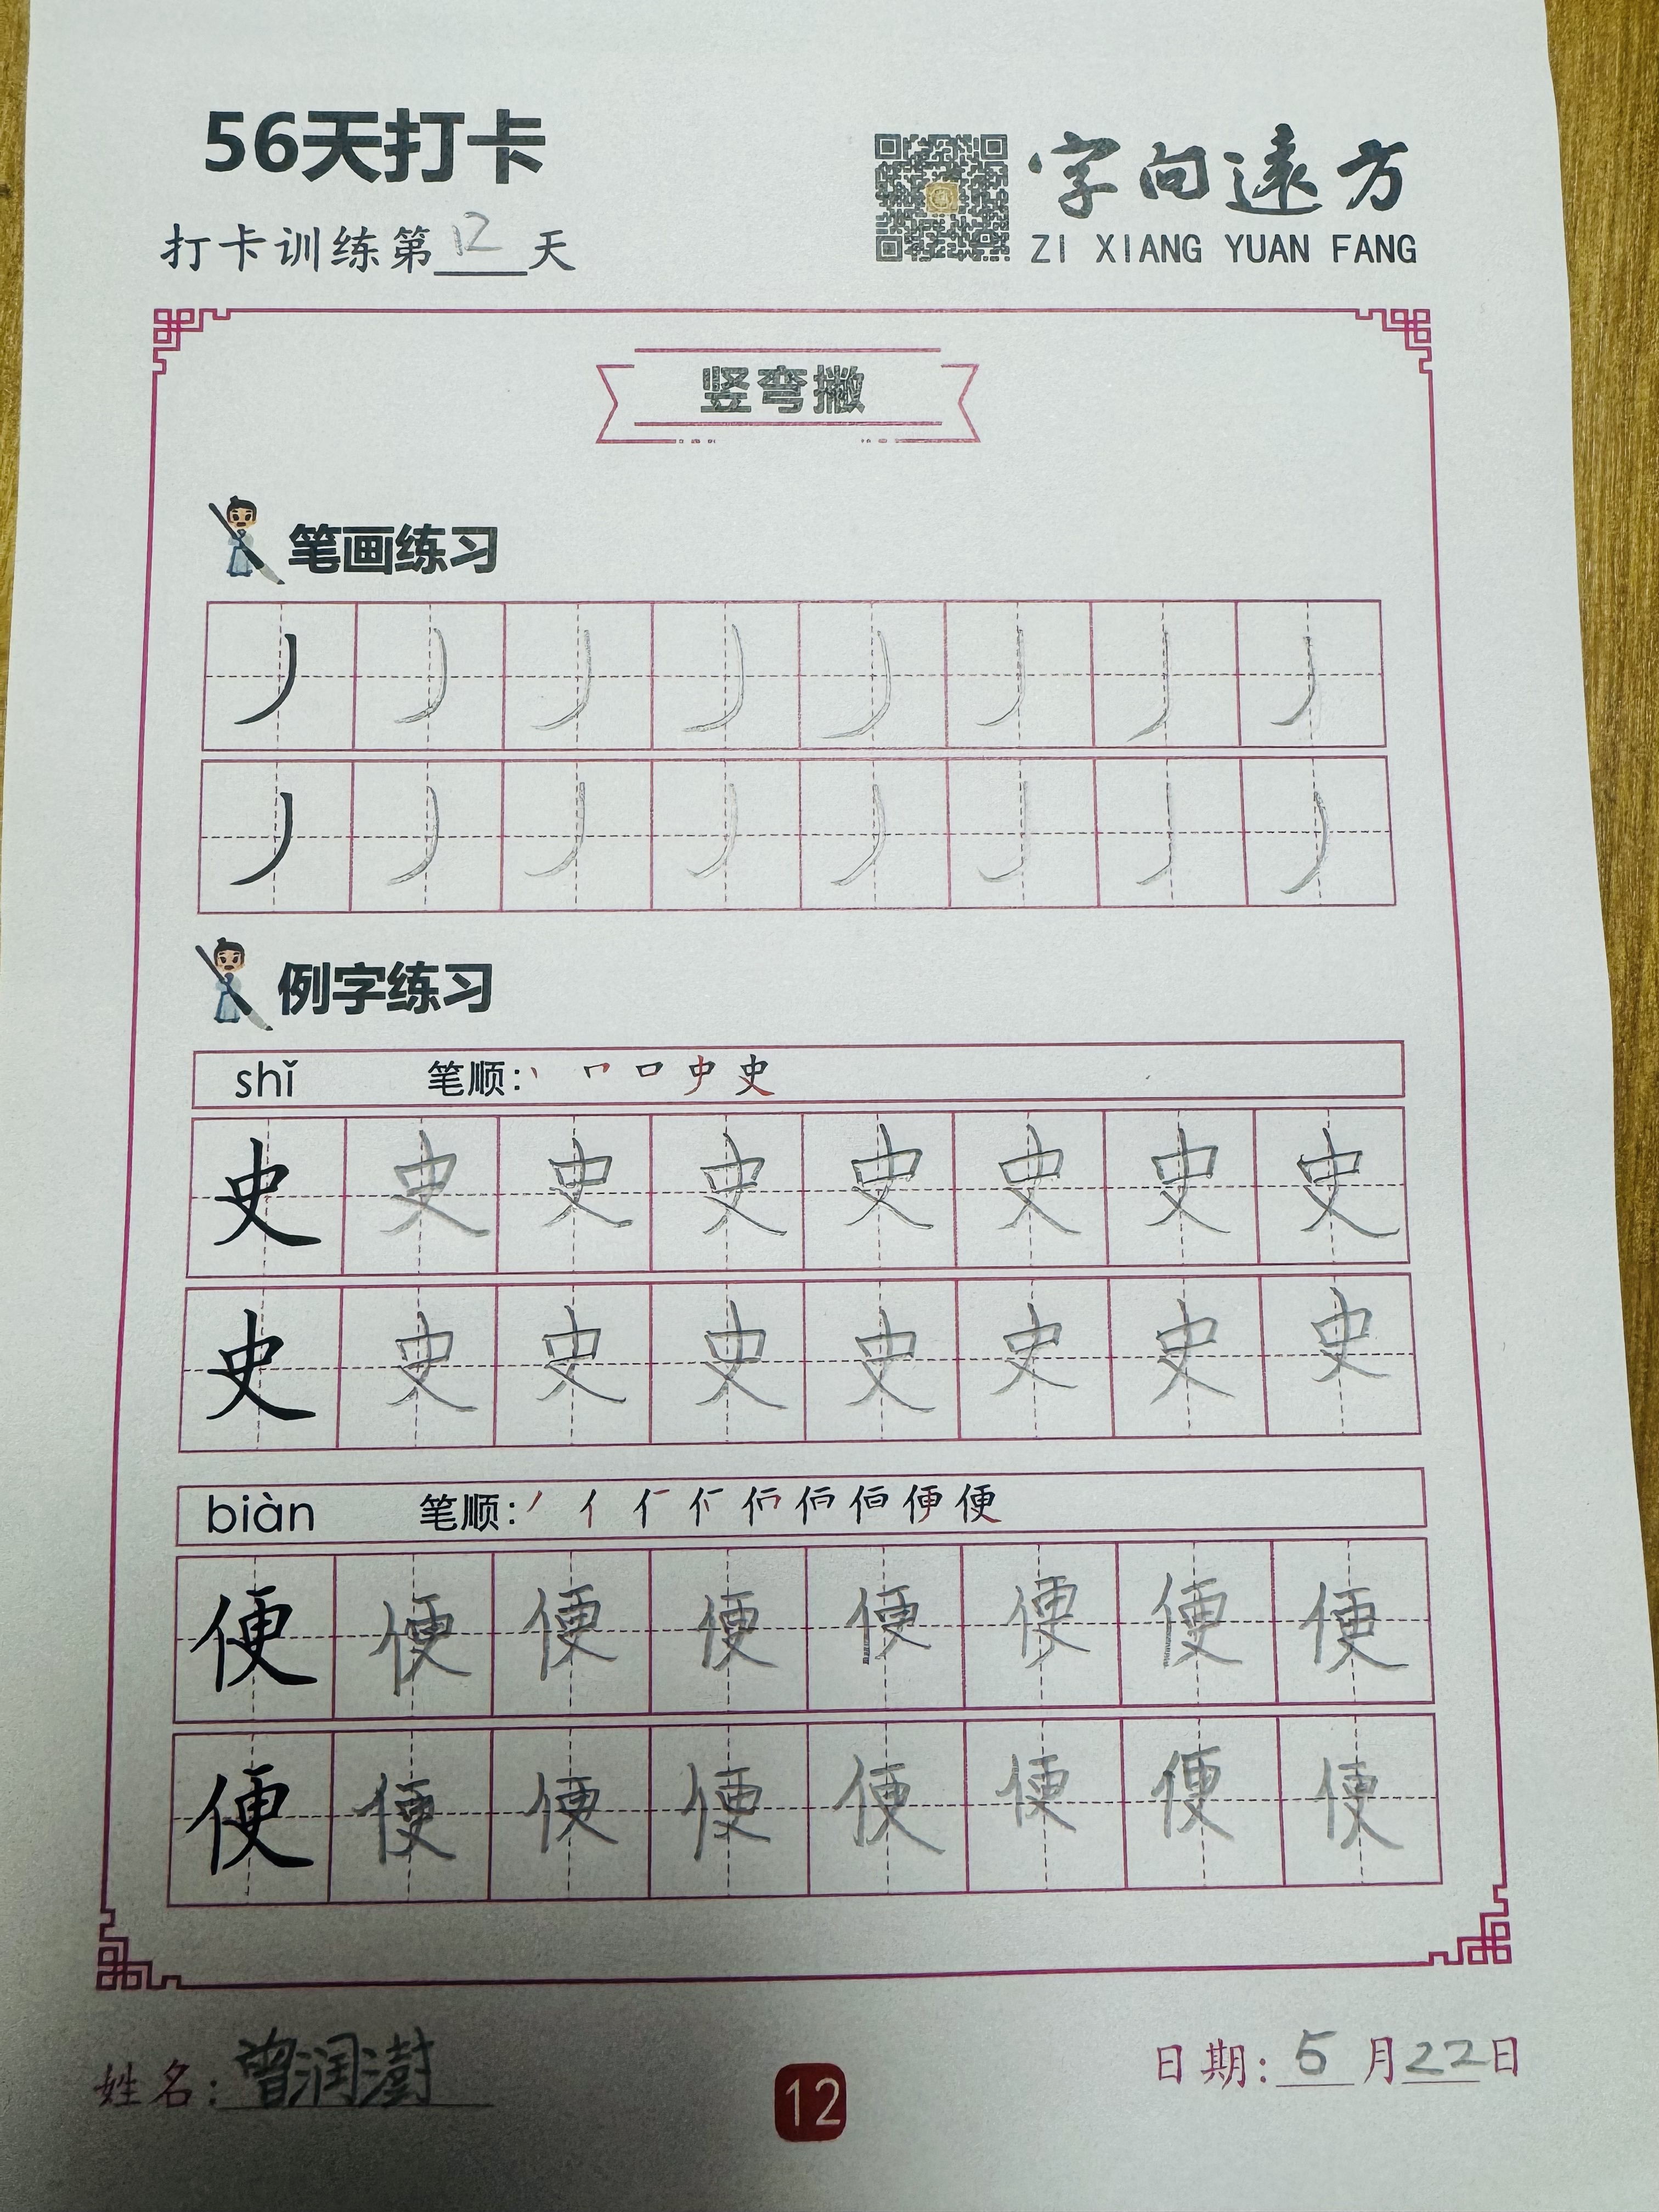 56天打卡
打卡训练第12天
字向遠方
ZI XIANG YUAN FANG
竖弯撇
笔画练习
丿 丿 丿 丿 丿 丿 丿 丿
丿 丿 丿 丿 丿 丿 丿 丿
例字练习
shǐ 笔顺: 丶 史
史 史 史 史 史 史 史 史
史 史 史 史 史 史 史 史
biàn 笔顺: 丿 亻 便
便 便 便 便 便 便 便 便
便 便 便 便 便 便 便 便
姓名: 曾润澍
12
日期: 5月22日